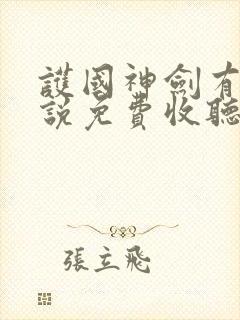 護國神劍有
說免費收聽
張立飛